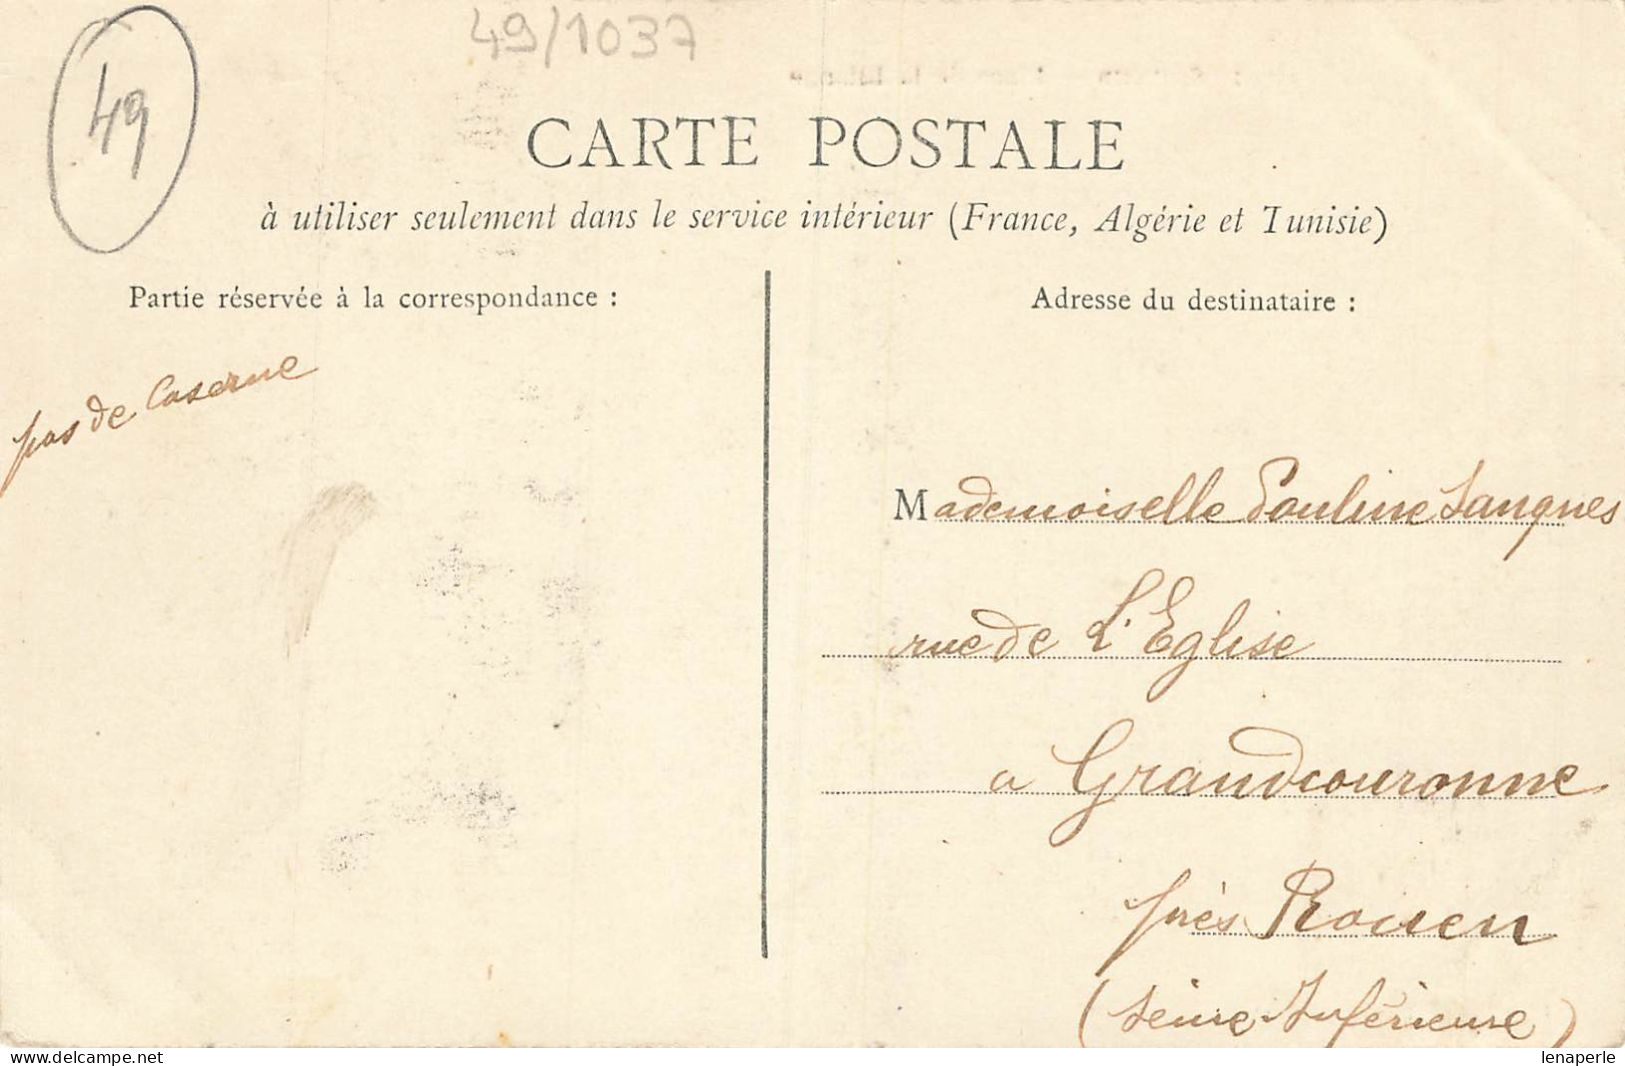 49/1037
49
CARTE POSTALE
à utiliser seulement dans le service intérieur (France, Algérie et Tunisie)
Partie réservée à la correspondance :
Adresse du destinataire :
pas de Caserne
Mademoiselle Pauline Sanques
rue de L'Eglise
a Grandcouronne
près Rouen
(Seine Inférieure)
lenaperle